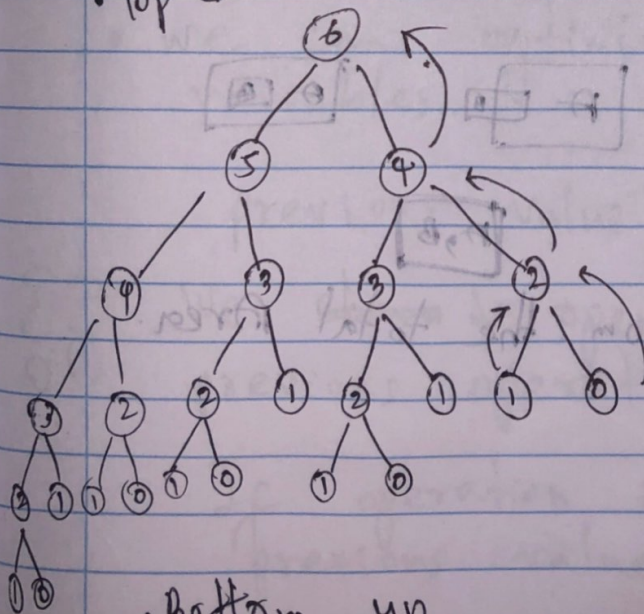 Top
6
5 4
4 3 3 2
3 2 2 1 2 1 1 0
2 1 1 0 1 0 1 0
1 0
Bottom up